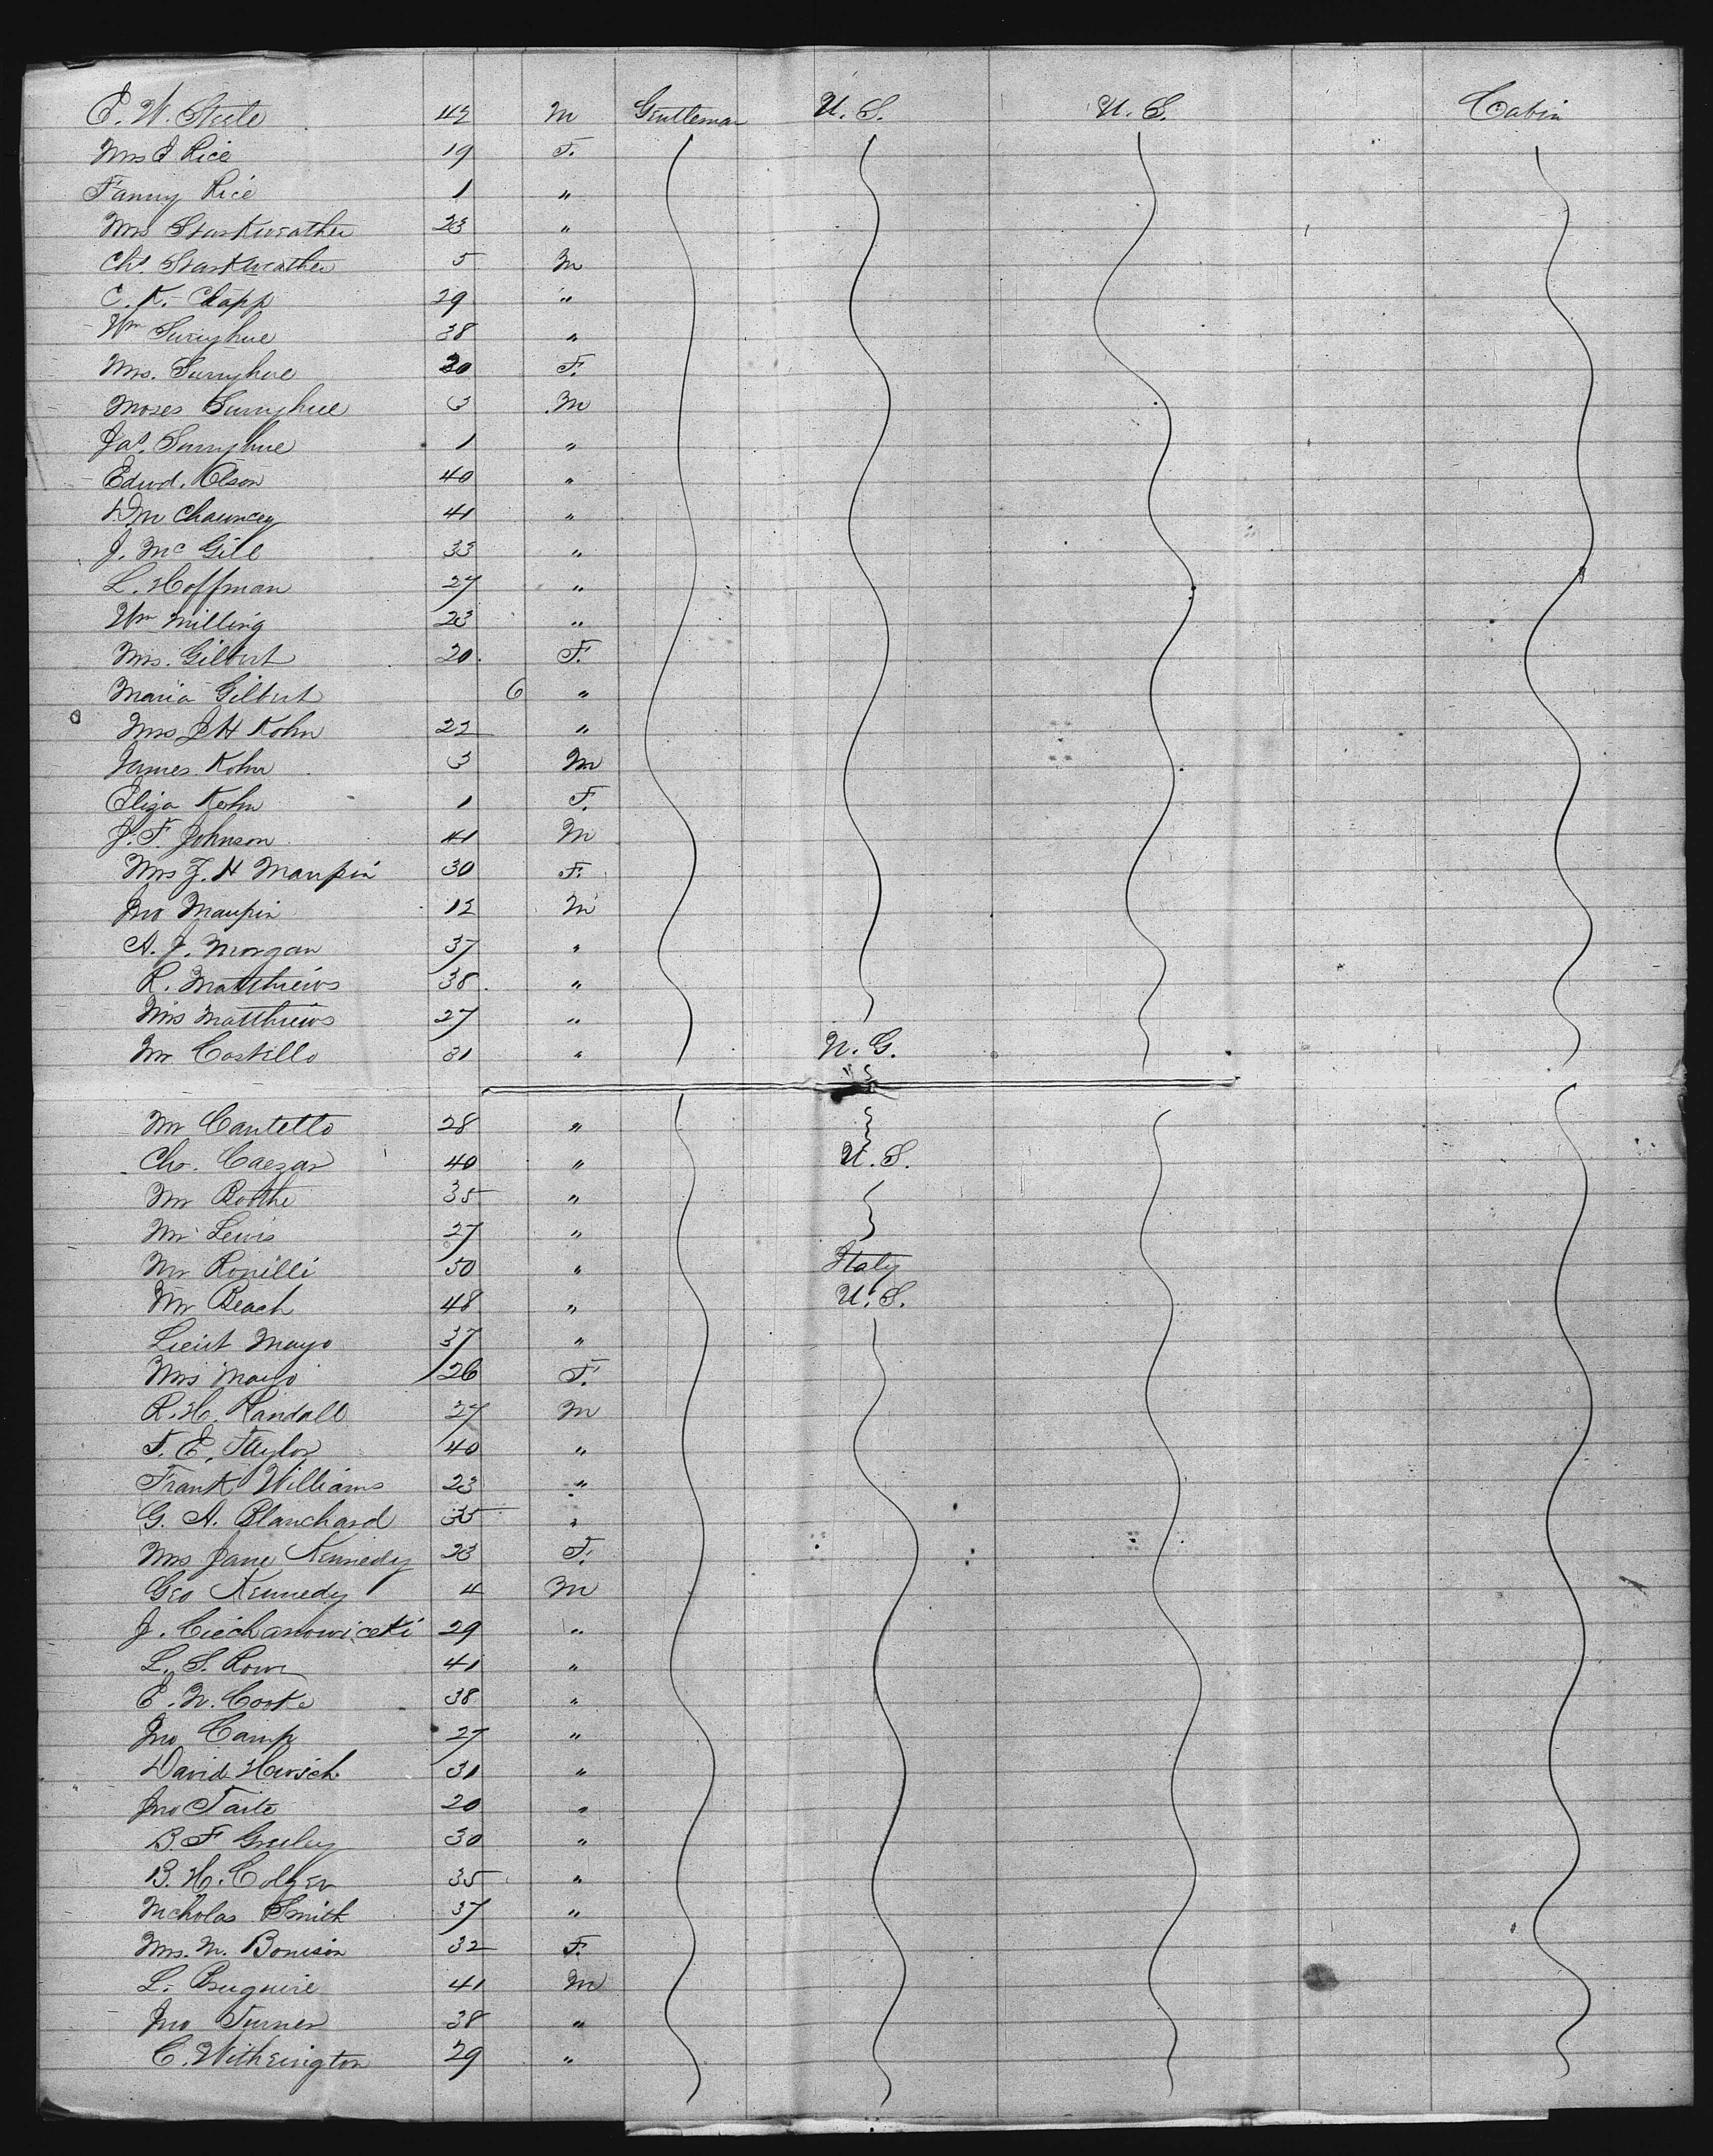 E. W. Steele 42 M Gentleman U. S. U. S. Cabin
Mrs J Rice 19 F.
Fanny Rice 1 "
Mrs Starkweather 23 "
Chs. Starkweather 5 M
C. K. Clapp 29 "
Wm Surryhue 38 "
Mrs. Surryhue 30 F.
Moses Surryhue 3 M
Jas. Surryhue 1 "
Edwd. Olson 40 "
D M Chauncey 41 "
J. Mc Gill 33 "
L. Hoffman 27 "
Wm Milling 23 "
Mrs. Gilbert 20 F.
Maria Gilbert 6 "
Mrs J H Kohn 22 "
James Kohn 3 M
Eliza Kohn 1 F.
J. F. Johnson 41 M
Mrs Z. H Maupin 30 F.
Jno Maupin 12 M
A. J. Morgan 37 "
R. Matthiews 38 "
Mrs Matthiews 27 "
Mr Costillo 31 " N. G.
Mr Cantello 28 "
Chs. Caezar 40 " U. S.
Mr Boothe 35 "
Mr Lewis 27 "
Mr Ronilli 50 " Italy
Mr Beach 48 " U. S.
Lieut Mayo 37 "
Mrs Mayo 26 F.
R. H. Randall 27 M
F. E. Taylor 40 "
Frank Williams 23 "
G. A. Blanchard 35 "
Mrs Jane Kennedy 23 F.
Geo Kennedy 4 M
J. Ciechanowiceki 29 "
L. S. Rowe 41 "
E. N. Cooke 38 "
Jno Camp 27 "
David Hirsch 31 "
Jno Taite 20 "
B. F Greeley 30 "
B. H. Colzer 35 "
Nicholas Smith 37 "
Mrs. M. Bonison 32 F.
L. Bruguire 41 M
Jno Turner 38 "
C. Witherington 29 "